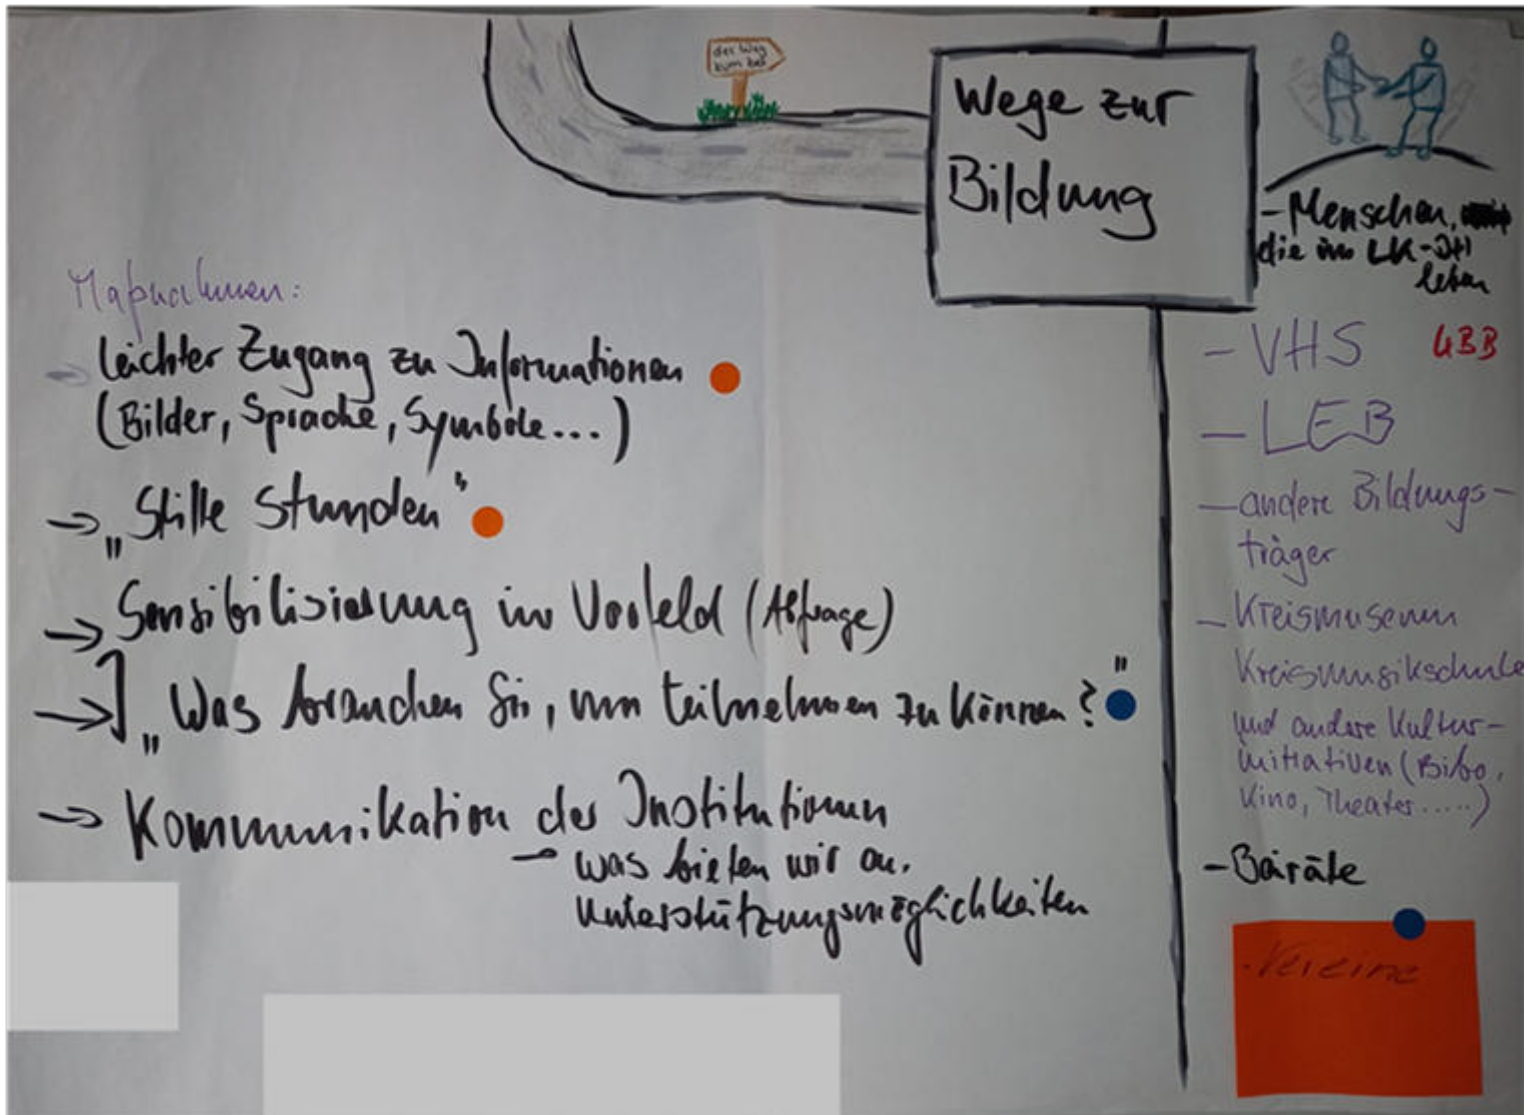 der Weg
Wege zur
Bildung
- Menschen,
die im LK-DH
leben
Maßnahmen:
→ leichter Zugang zu Informationen
(Bilder, Sprache, Symbole...)
→ „Stille Stunden"
→ Sensibilisierung im Vorfeld (Abfrage)
→ „Was brauchen Sie, um teilnehmen zu können?"
→ Kommunikation der Institutionen
→ was bieten wir an.
Unterstützungsmöglichkeiten
- VHS
- LEB
- andere Bildungs-
träger
- Kreismuseum
Kreismusikschule
und andere Kultur-
initiativen (Bibo,
Kino, Theater.....)
- Beiräte
- Vereine